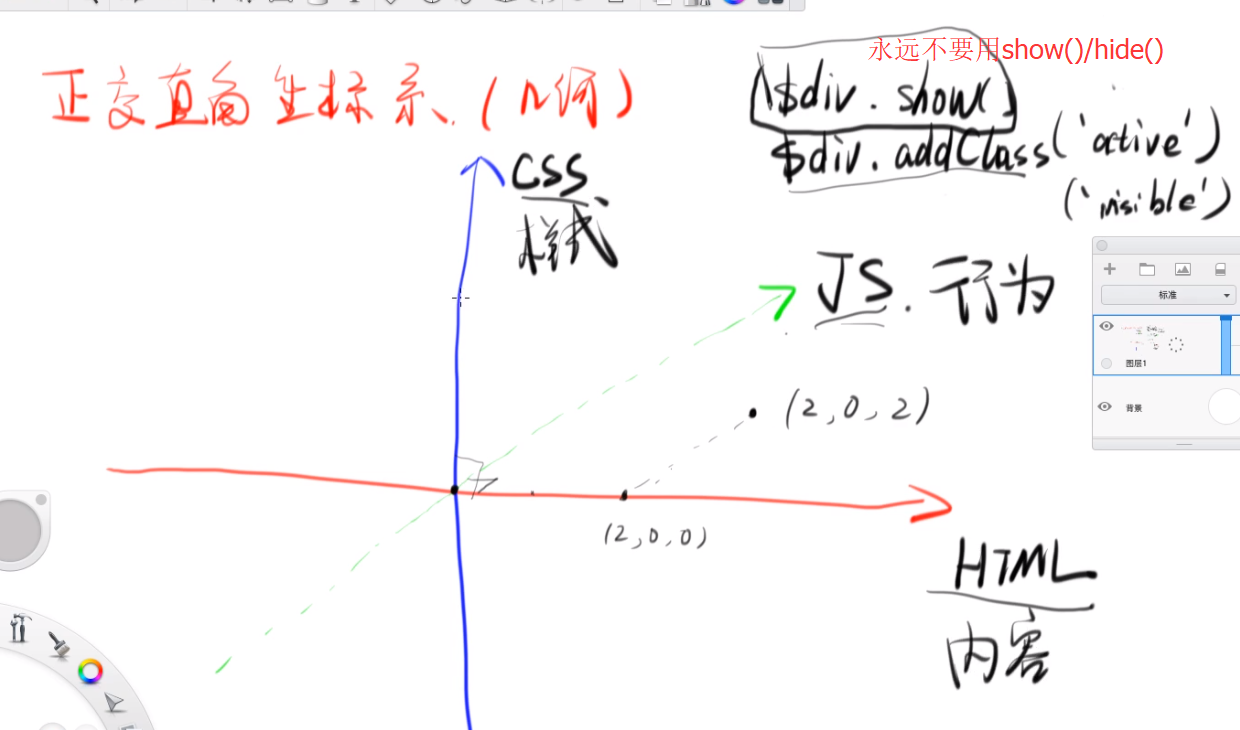 永远不要用show()/hide()
正交直角坐标系、(几何)
$div.show()
$div.addClass('active')
('visible')
CSS、
样式
JS.行为
标准
图层1
背景
(2,0,2)
(2,0,0)
HTML
内容